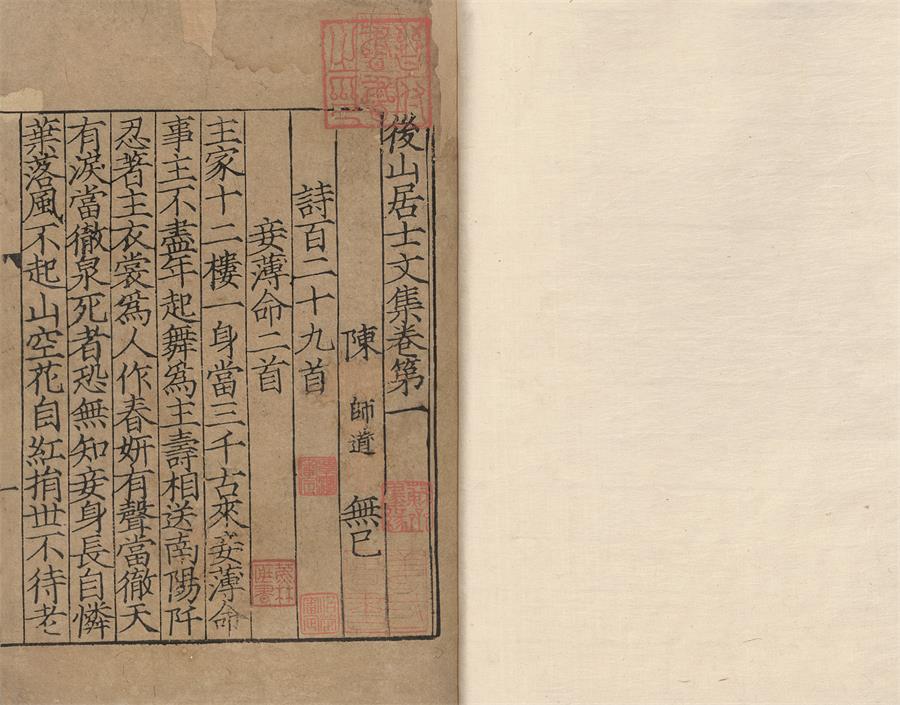 後山居士文集卷第一
陳 師道 無已
詩百二十九首
妾薄命二首
主家十二樓一身當三千古來妾薄命
事主不盡年起舞為主壽相送南陽阡
忍著主衣裳為人作春妍有聲當徹天
有淚當徹泉死者恐無知妾身長自憐
葉落風不起山空花自紅捐世不待老